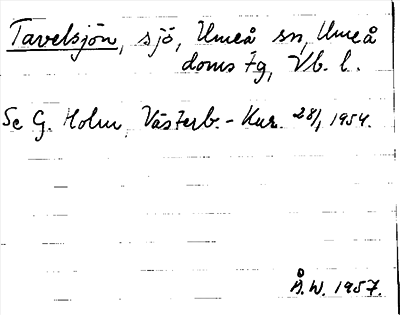 Tavelsjön, sjö, Umeå sn, Umeå
doms tg, Vb. l.
Se G. Holm, Västerb.-Kur. 28/1 1954.
Å.W. 1957.